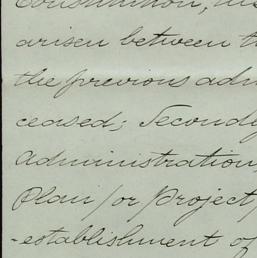 Constitution,
arisen between
the previous
ceased; Secondly
Administration,
Plan/or project/
-establishment of